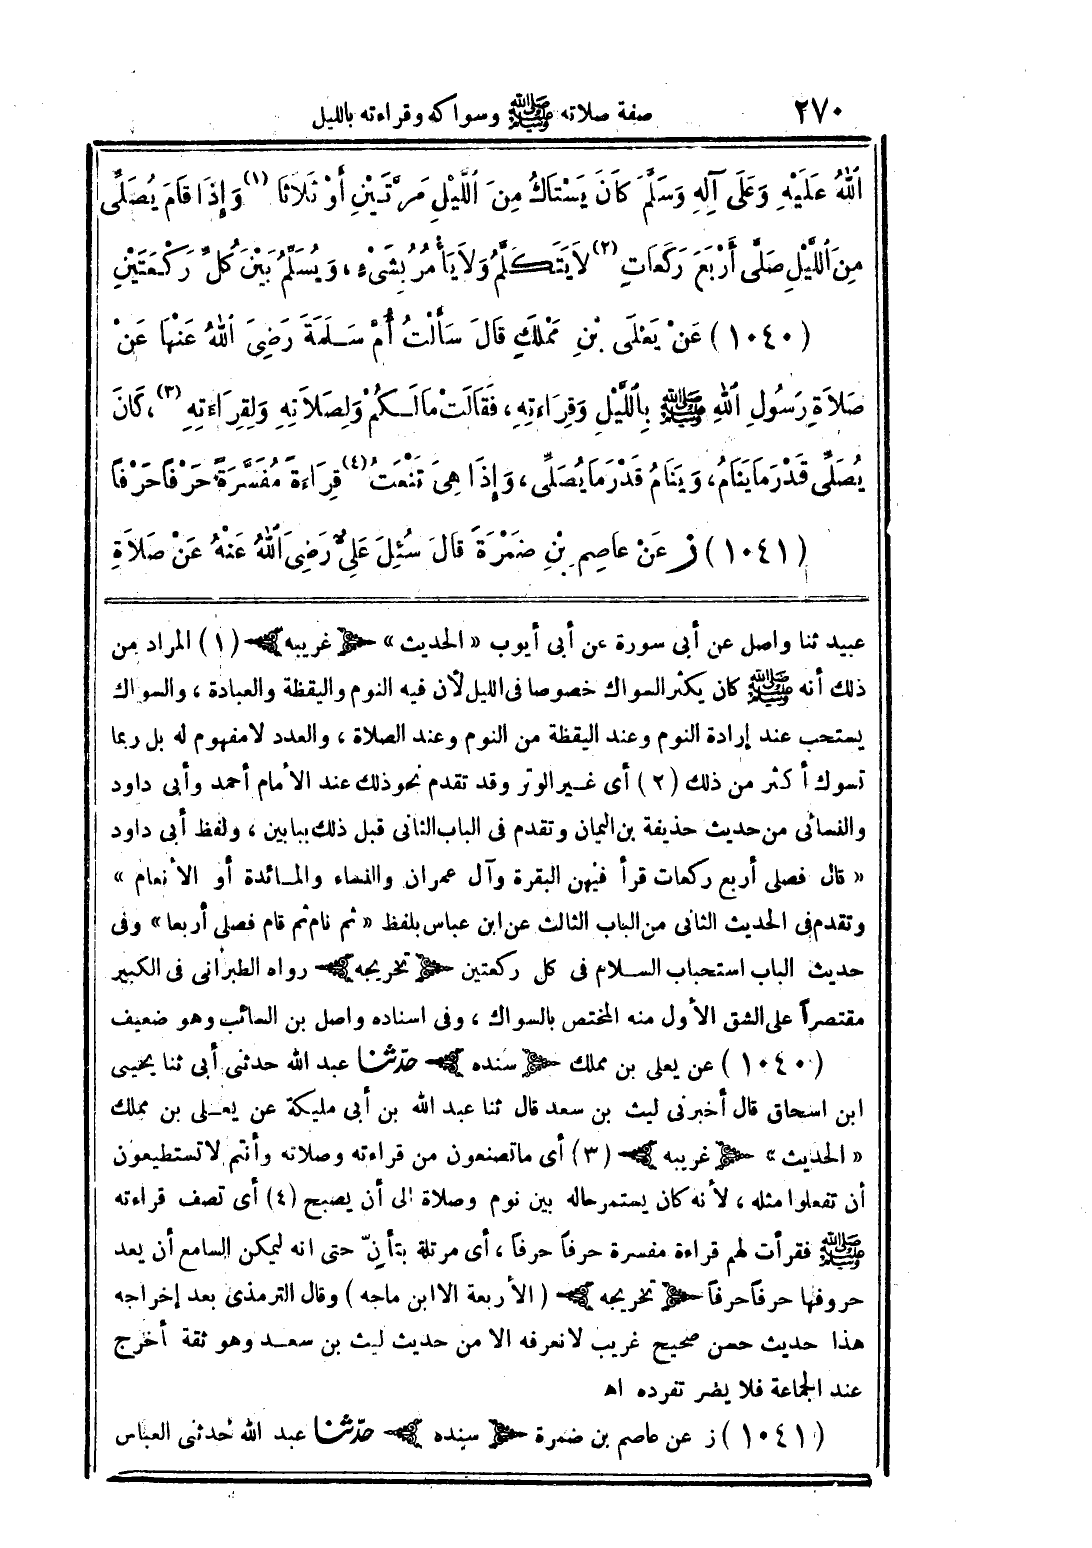 ٢٧٠ صفة صلاته ﷺ وسواكه وقراءته بالليل
ٱللهُ عَلَيْهِ وَعَلَى آلِهِ وَسَلَّمَ كَانَ يَسْتَاكُ مِنَ ٱللَّيْلِ مَرَّتَيْنِ أَوْ ثَلَاثًا (١) وَإِذَا قَامَ يُصَلِّى
مِنَ ٱللَّيْلِ صَلَّى أَرْبَعَ رَكَعَاتٍ (٢) لَا يَتَكَلَّمُ وَلَا يَأْمُرُ بِشَىْءٍ ، وَيُسَلِّمُ بَيْنَ كُلِّ رَكْعَتَيْنِ
(١٠٤٠) عَنْ يَعْلَى بْنِ مَمْلَكٍ قَالَ سَأَلْتُ أُمَّ سَلَمَةَ رَضِىَ ٱللهُ عَنْهَا عَنْ
صَلَاةِ رَسُولِ ٱللهِ ﷺ بِاللَّيْلِ وَقِرَاءَتِهِ ، فَقَالَتْ مَالَكُمْ وَلِصَلَاتِهِ وَلِقِرَاءَتِهِ (٣) ، كَانَ
يُصَلِّى قَدْرَ مَا يَنَامُ ، وَيَنَامُ قَدْرَ مَا يُصَلِّى ، وَإِذَا هِىَ تَنْعَتُ (٤) قِرَاءَةً مُفَسَّرَةً حَرْفًا حَرْفًا
(١٠٤١) ز عَنْ عَاصِمِ بْنِ ضَمْرَةَ قَالَ سُئِلَ عَلِىٌّ رَضِىَ ٱللهُ عَنْهُ عَنْ صَلَاةِ
عبيد ثنا واصل عن أبى سورة عن أبى أيوب « الحديث » غريبه (١) المراد من
ذلك أنه ﷺ كان يكثر السواك خصوصا فى الليل لأن فيه النوم واليقظة والعبادة ، والسواك
يستحب عند إرادة النوم وعند اليقظة من النوم وعند الصلاة ، والعدد لامفهوم له بل ربما
تسوك أكثر من ذلك (٢) أى غير الوتر وقد تقدم نحو ذلك عند الأمام أحمد وأبى داود
والنسائى من حديث حذيفة بن اليمان وتقدم فى الباب الثانى قبل ذلك ببابين ، ولفظ أبى داود
« قال فصلى أربع ركعات قرأ فيهن البقرة وآل عمران والنساء والمائدة أو الأنعام »
وتقدم فى الحديث الثانى من الباب الثالث عن ابن عباس بلفظ « ثم نام ثم قام فصلى أربعا » وفى
حديث الباب استحباب السلام فى كل ركعتين تخريجه رواه الطبرانى فى الكبير
مقتصراً على الشق الأول منه المختص بالسواك ، وفى اسناده واصل بن السائب وهو ضعيف
(١٠٤٠) عن يعلى بن مملك سنده حدّثنا عبد الله حدثنى أبى ثنا يحيى
ابن اسحاق قال أخبرنى ليث بن سعد قال ثنا عبد الله بن أبى مليكة عن يعلى بن مملك
« الحديث » غريبه (٣) أى ماتصنعون من قراءته وصلاته وأنتم لاتستطيعون
أن تفعلوا مثله ، لأنه كان يستمر حاله بين نوم وصلاة الى أن يصبح (٤) أى تصف قراءته
ﷺ فقرأت لهم قراءة مفسرة حرفاً حرفاً ، أى مرتلة بتأنّ حتى انه ليمكن السامع أن يعد
حروفها حرفاً حرفاً تخريجه ( الأربعة الا ابن ماجه ) وقال الترمذى بعد إخراجه
هذا حديث حسن صحيح غريب لانعرفه الا من حديث ليث بن سعد وهو ثقة أخرج
عند الجماعة فلا يضر تفرده اه
(١٠٤١) ز عن عاصم بن ضمرة سنده حدّثنا عبد الله حدثنى العباس